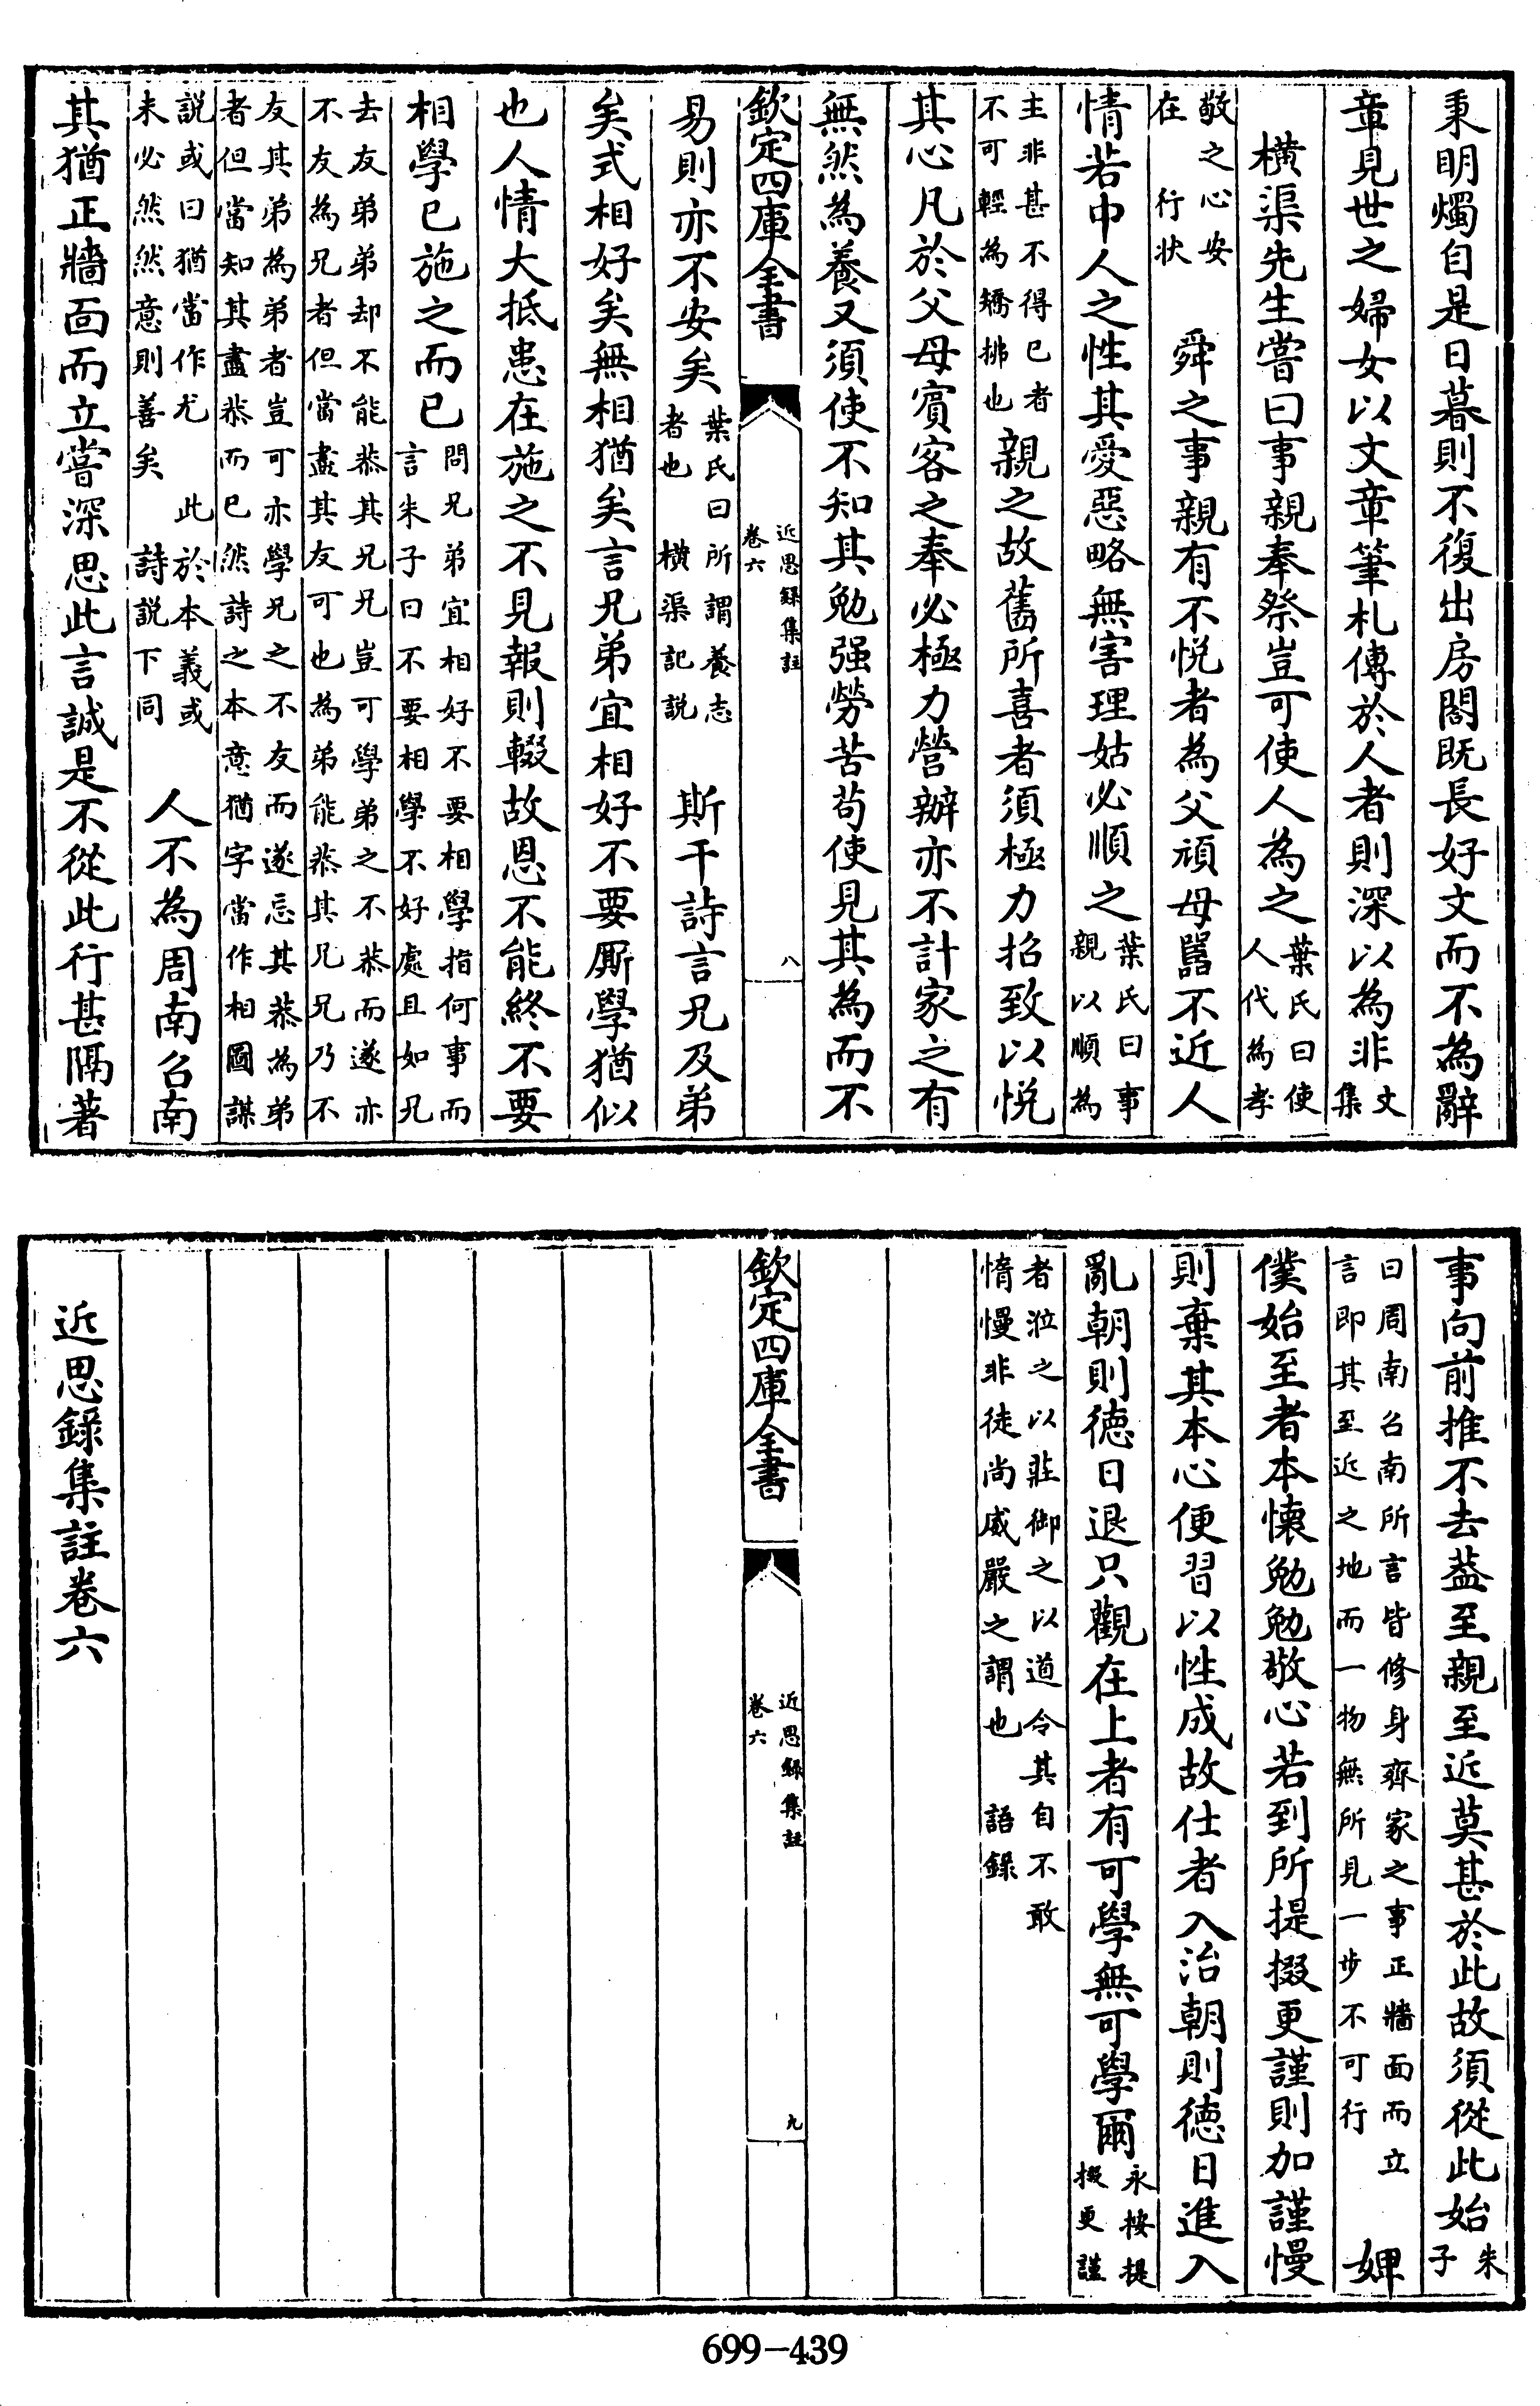 秉明燭自是日暮則不復出房閤既長好文而不為辭
章見世之婦女以文章筆札傳於人者則深以為非文集
橫渠先生嘗曰事親奉祭豈可使人為之葉氏曰使人代為孝
敬之心安在 行狀 舜之事親有不悅者為父頑母嚚不近人
情若中人之性其愛惡略無害理姑必順之葉氏曰事親以順為
主非甚不得已者不可輕為矯拂也親之故舊所喜者須極力招致以悅
其心凡於父母賓客之奉必極力營辦亦不計家之有
無然為養又須使不知其勉强勞苦苟使見其為而不
欽定四庫全書 近思錄集註卷六 八
易則亦不安矣葉氏曰所謂養志者也 橫渠記説 斯干詩言兄及弟
矣式相好矣無相猶矣言兄弟宜相好不要厮學猶似
也人情大抵患在施之不見報則輟故恩不能終不要
相學已施之而已問兄弟宜相好不要相學指何事而言朱子曰不要相學不好處且如兄
去友弟弟却不能恭其兄兄豈可學弟之不恭而遂亦不友為兄者但當盡其友可也為弟能恭其兄兄乃不
友其弟為弟者豈可亦學兄之不友而遂忘其恭為弟者但當知其盡恭而已然詩之本意猶字當作相圖謀
説或曰猶當作尤 此於本義或未必然然意則善矣 詩説下同 人不為周南召南
其猶正牆面而立嘗深思此言誠是不從此行甚隔著
事向前推不去葢至親至近莫甚於此故須從此始朱子
曰周南召南所言皆修身齊家之事正牆面而立言即其至近之地而一物無所見一步不可行 婢
僕始至者本懷勉勉敬心若到所提掇更謹則加謹慢
則棄其本心便習以性成故仕者入治朝則德日進入
亂朝則德日退只觀在上者有可學無可學爾永按提掇更謹
者涖之以莊御之以道令其自不敢惰慢非徒尚威嚴之謂也 語錄
欽定四庫全書 近思錄集註卷六 九
近思錄集註卷六
699-439